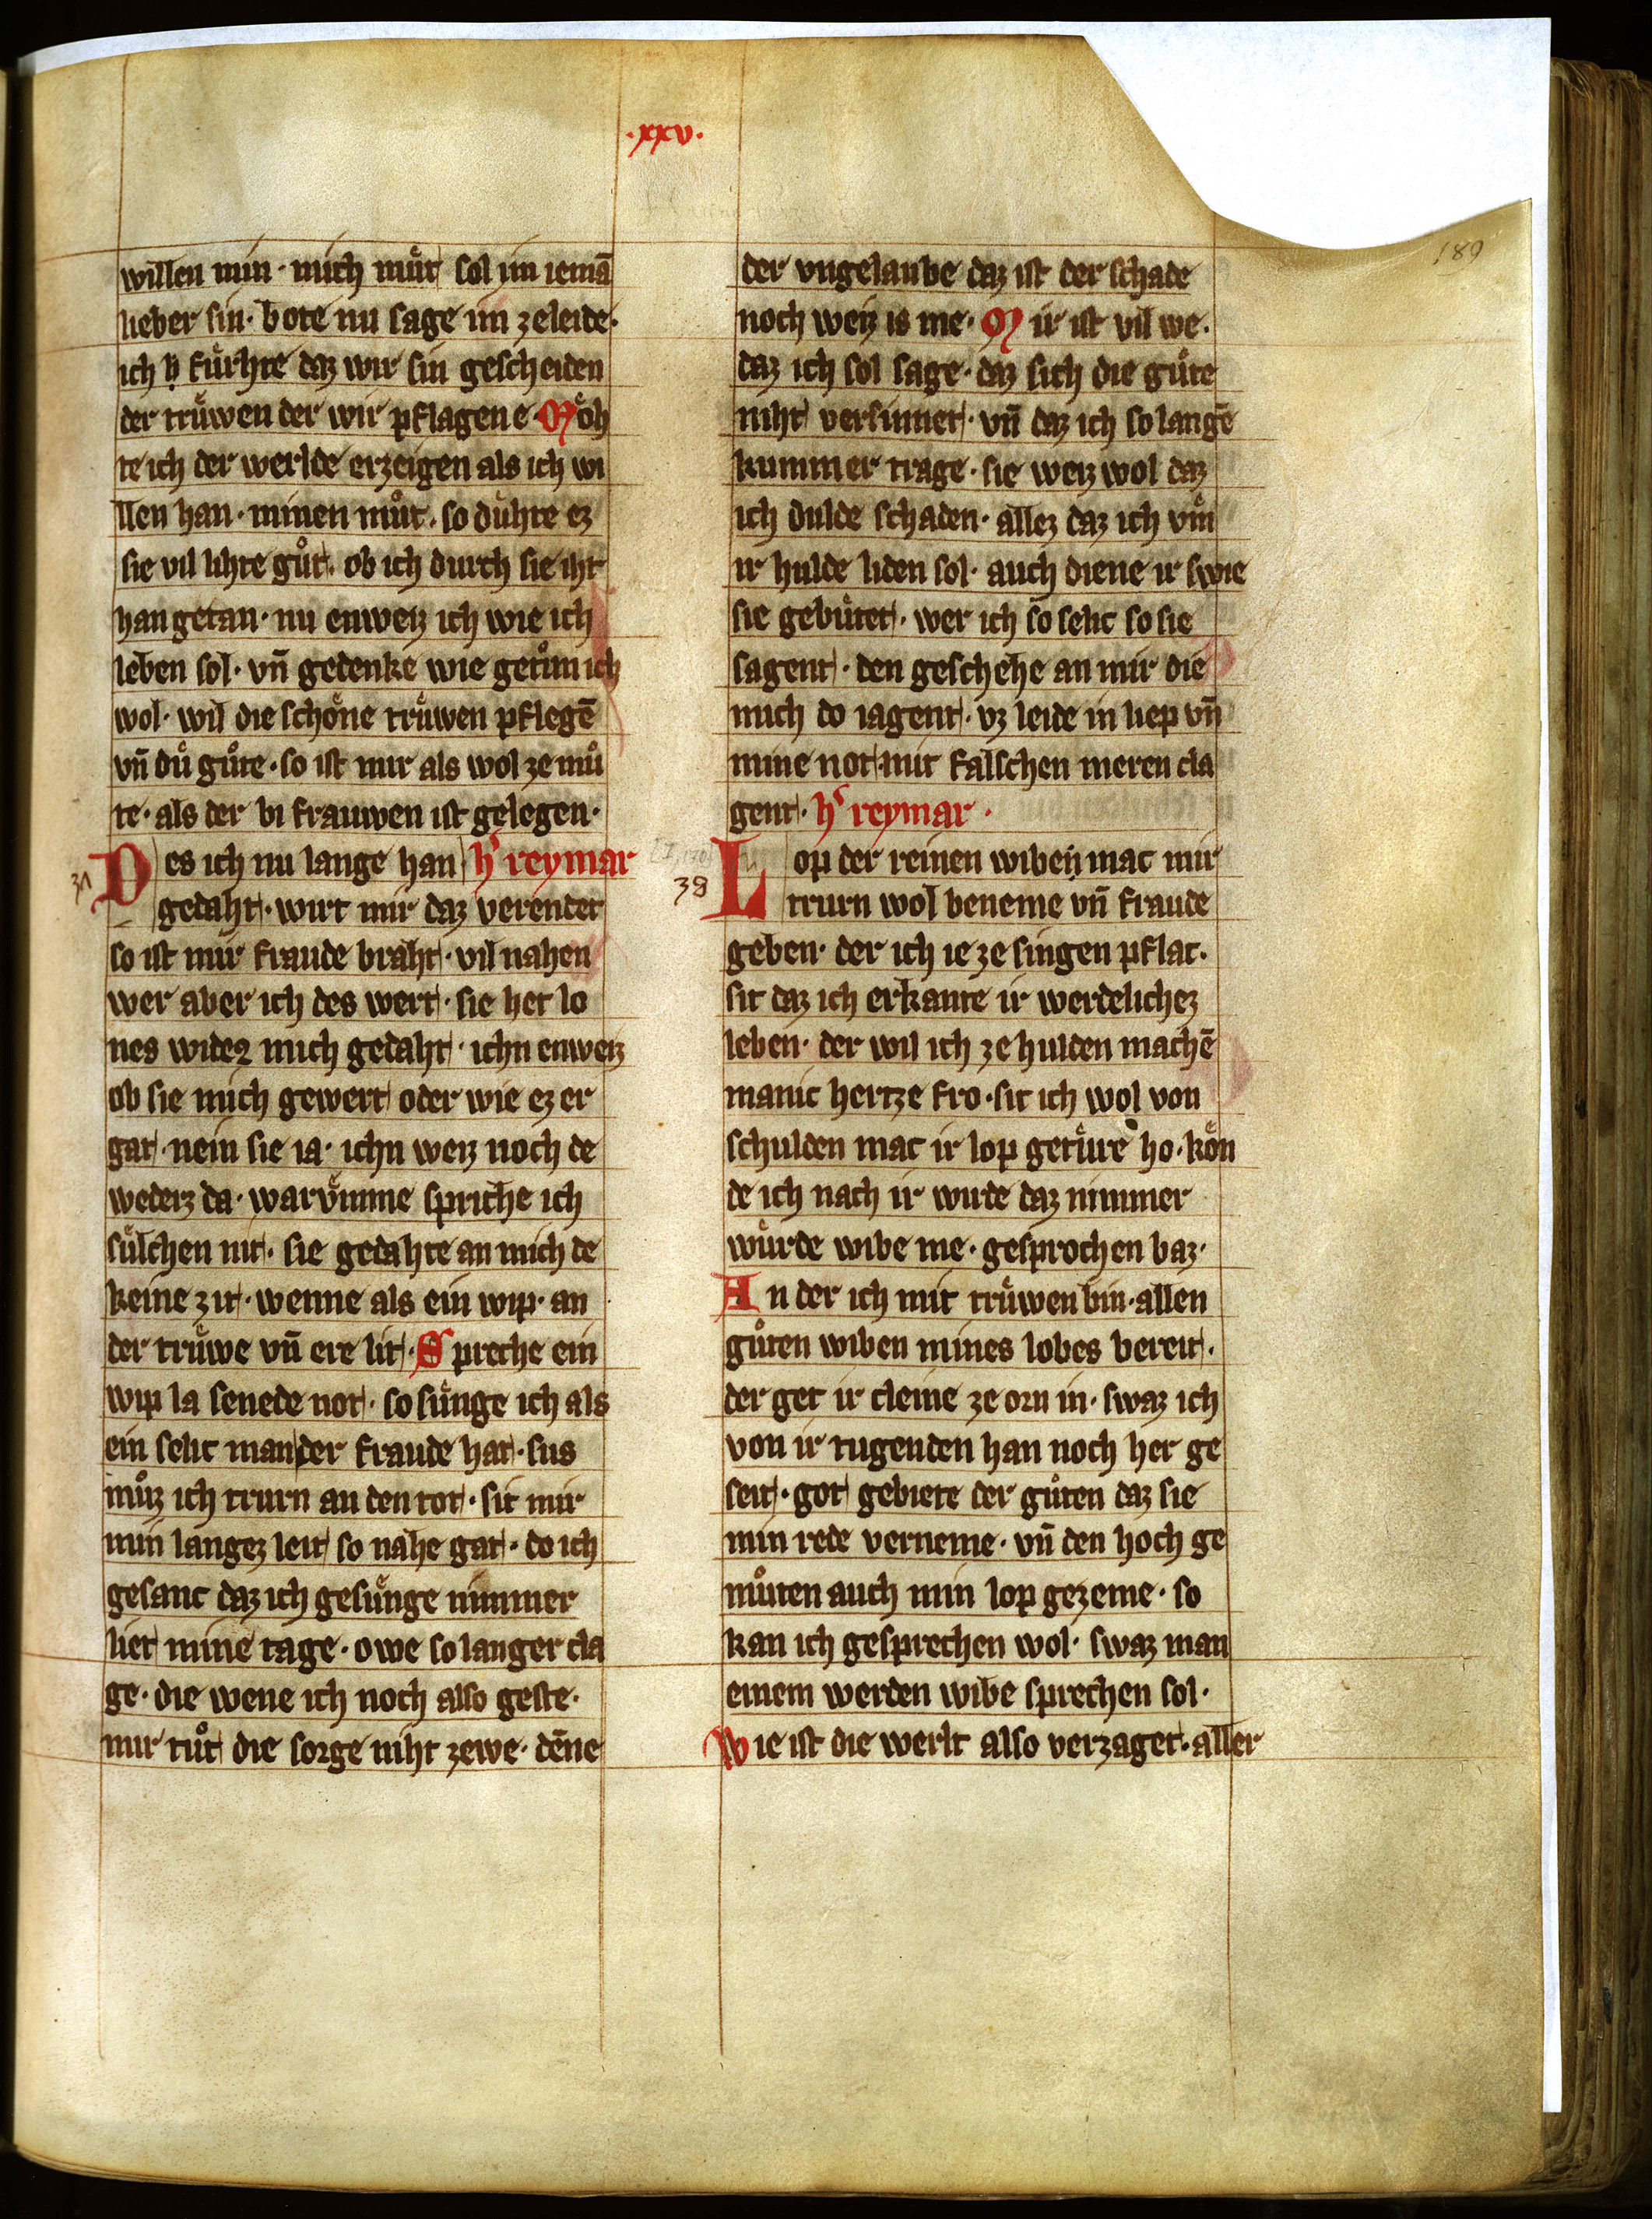 ·xxv·
189
willen min · mich muͤt sol im iemā
lieber sin · bote nu sage im zeleide ·
ich ḥ fuͤrhte daz wir sin gescheiden
der truͤwen der wir pflagen e · Moͤh
te ich der werlde erzeigen als ich wi
llen han · minen muͦt · so duhte ez
sie vil lihte guͦt · ob ich durch sie iht
han getan · nu enweiz ich wie ich
leben sol · vn̄ gedenke wie getuͦm ich
wol · wil die schoͤne truͤwen pflegē
vn̄ duͤ guͦte · so ist mir als wol ze muͦ
te · als der bi frauwen ist gelegen ·
Des ich nu lange han h͛ reymar
31
gedaht · wirt mir daz verendet
so ist mir fraude braht · vil nahen
wer aber ich des wert · sie het lo
nes wider mich gedaht · ichn enweiz
ob sie mich gewert oder wie ez er
gat · nein sie ia · ichn weiz noch de
wederz da · warvͤmme spriche ich
suͤlchen nit · sie gedahte an mich de
keine zit · wenne als ein wip · an
der truͤwe vn̄ ere lit · Spreche ein
wip la senede not · so suͤnge ich als
ein seht man der fraude hat · sus
muͦz ich trurn an den tot · sit mir
min langez leit so nahe gat · do ich
gesanc daz ich gesuͤnge nimmer
liet mine tage · owe so langer cla
ge · die wene ich noch also geste ·
mir tuͦt die sorge niht zewe · dēne
der vngelaube daz ist der schade
noch weiz is me · Mir ist vil we ·
daz ich sol sage · daz sich die guͦte
niht versinnet · vn̄ daz ich so langē
kummer trage · sie weiz wol daz
ich dulde schaden · allez daz ich vm̄
ir hulde liden sol · auch diene ir swie
sie gebuͤtet · wer ich so seht so sie
sagent · den geschehe an mir die
mich do iagent · vz leide in liep vn̄
mine not mit falschen meren cla
gent · h͛ reymar ·
38
Lop der reinen wibeṇ mac mir
trurn wol beneme vn̄ fraude
geben · der ich ie ze singen pflac ·
sit daz ich erkante ir werdelichez
leben · der wil ich ze hulden machē
manic hertze fro · sit ich wol von
schulden mac ir lop getuͤre ho · koͤn
de ich nach ir wirde daz nimmer
wuͤrde wibe me · gesprochen baz ·
An der ich mit truͤwen bin · allen
guͦten wiben mines lobes bereit ·
der get ir cleine ze orn in · swaz ich
von ir tugenden han noch her ge
seit · got gebiete der guͦten daz sie
min rede verneme · vn̄ den hoch ge
muͦten auch min lop gezeme · so
kan ich gesprechen wol · swaz man
einem werden wibe sprechen sol ·
Wie ist die werlt also verzaget · aller